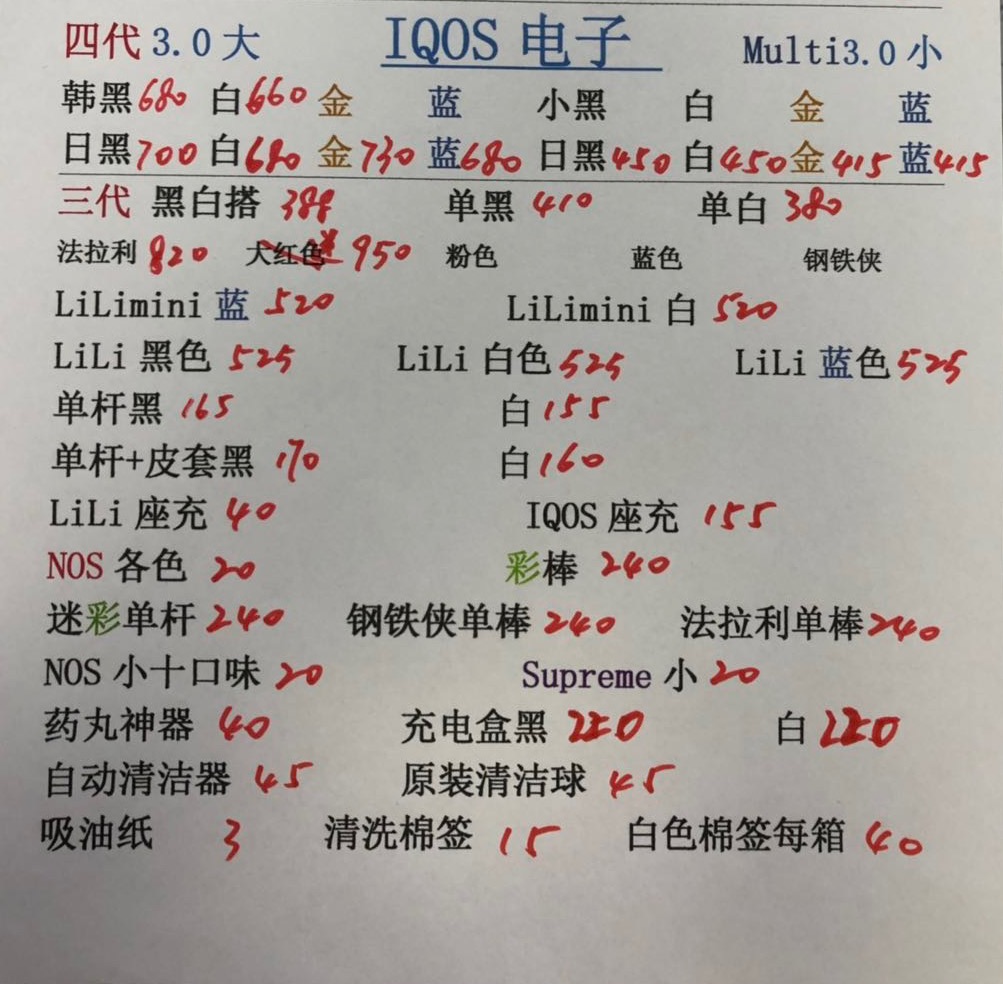 四代 3.0 大 IQOS 电子 Multi3.0 小
韩黑 680 白 660 金 蓝 小黑 白 金 蓝
日黑 700 白 680 金 730 蓝 680 日黑 450 白 450 金 415 蓝 415
三代 黑白搭 388 单黑 410 单白 380
法拉利 820 大红色 950 粉色 蓝色 钢铁侠
LiLimini 蓝 520 LiLimini 白 520
LiLi 黑色 525 LiLi 白色 525 LiLi 蓝色 525
单杆黑 165 白 155
单杆+皮套黑 170 白 160
LiLi 座充 40 IQOS 座充 155
NOS 各色 20 彩棒 240
迷彩单杆 240 钢铁侠单棒 240 法拉利单棒 240
NOS 小十口味 20 Supreme 小 20
药丸神器 40 充电盒黑 白
自动清洁器 45 原装清洁球 45
吸油纸 3 清洗棉签 15 白色棉签每箱 40